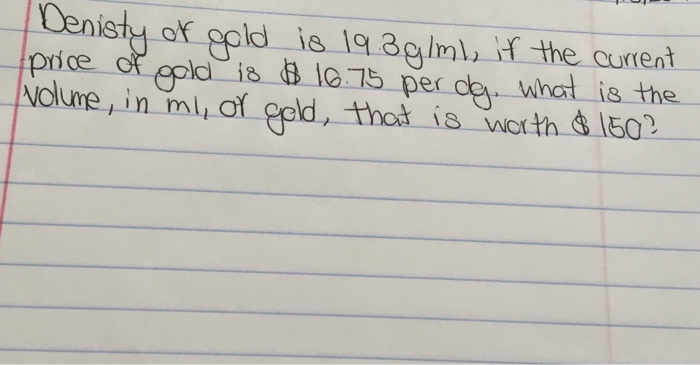 Denisty of gold is 19.3g/ml, if the current
price of gold is $ 16.75 per dg. what is the
volume, in ml, of gold, that is worth $150?